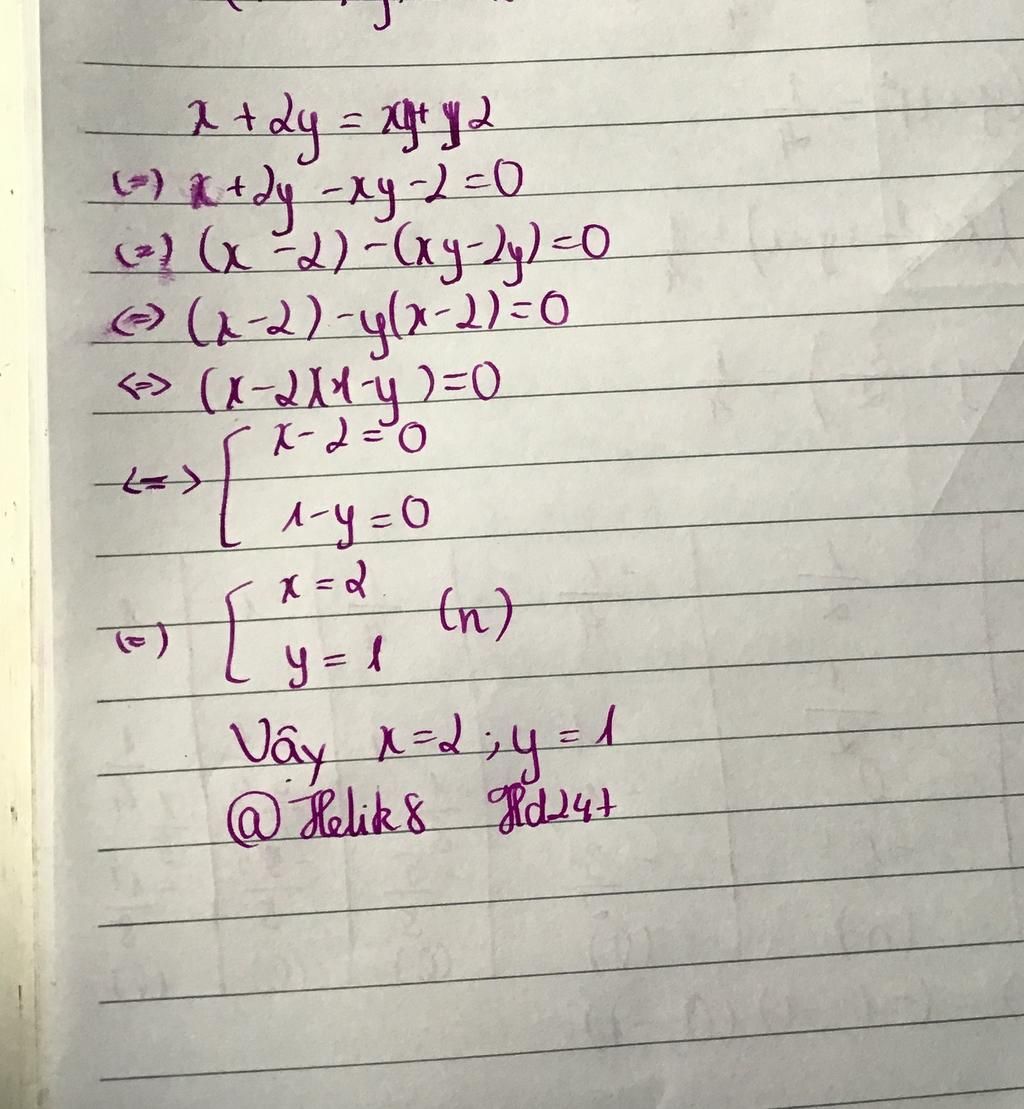 x + 2y = xy + 2
(=) x + 2y - xy - 2 = 0
(=) (x - 2) - (xy - 2y) = 0
<=> (x - 2) - y(x - 2) = 0
<=> (x - 2)(1 - y) = 0
<=> [ x - 2 = 0
1 - y = 0
(=) [ x = 2
y = 1 (n)
Vậy x = 2 ; y = 1
@Helik8 Hd24+